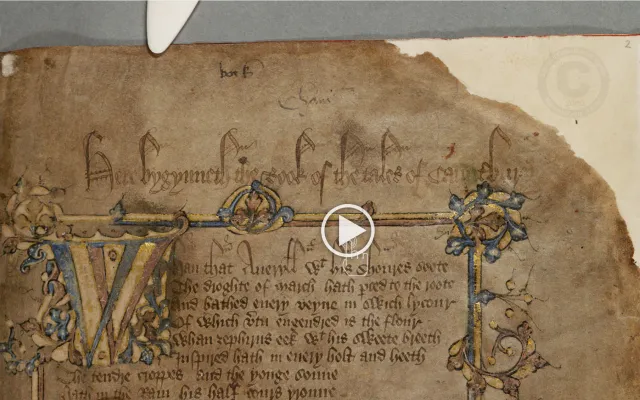 2
Here bygynneth the Book of the tales of Caunterbury
Whan that Aueryll wt his shoures soote
The droghte of march hath pced to the roote
And bathed euery veyne in swich lycour
Of which vtu engendred is the flour
Whan zephirus eek wt his sweete breeth
Inspired hath in euery holt and heeth
The tendre croppes and the yonge sonne
Hath in the Ram his half cours yronne